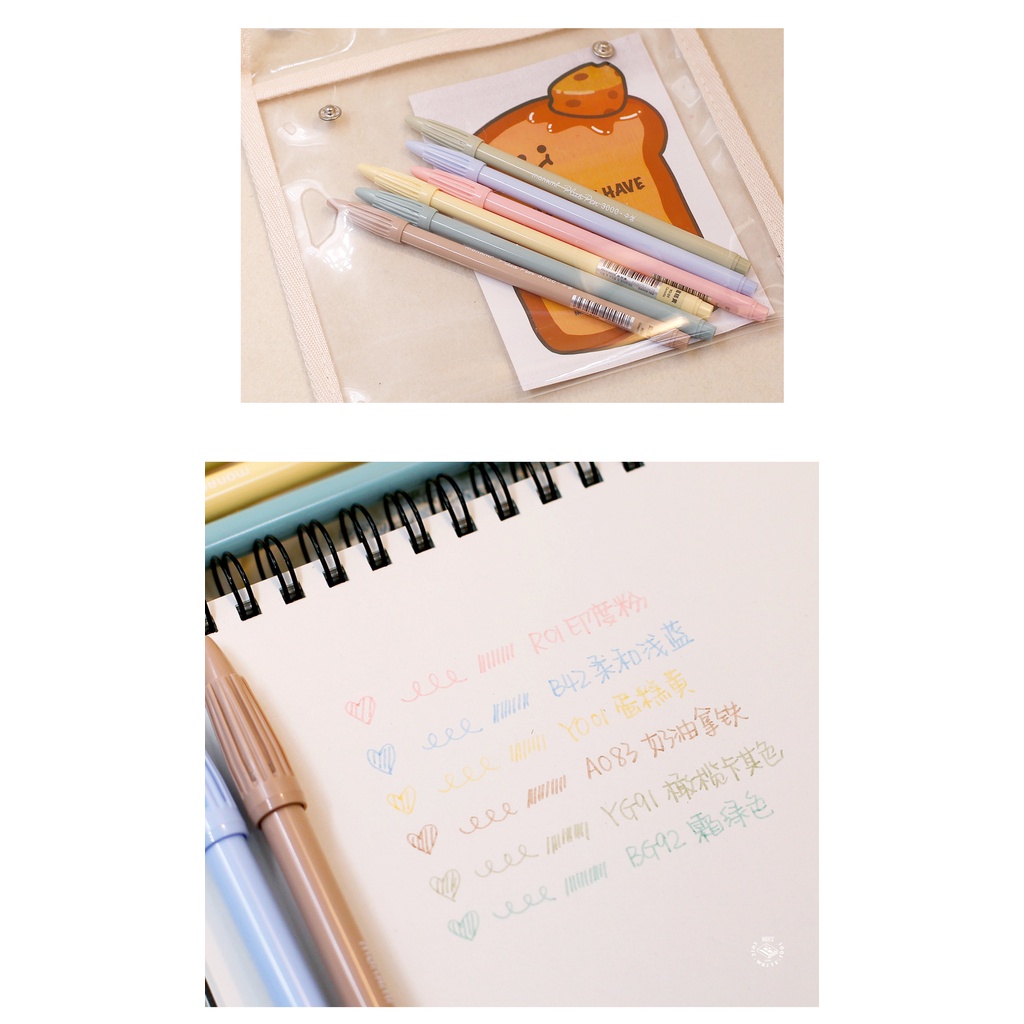 HAVE
monami Plus Pen 3000-93
R01 印度粉
B42 柔和浅蓝
Y001 蛋糕黄
A083 奶油拿铁
YG91 橄榄卡其色
BG92 霜绿色
monami